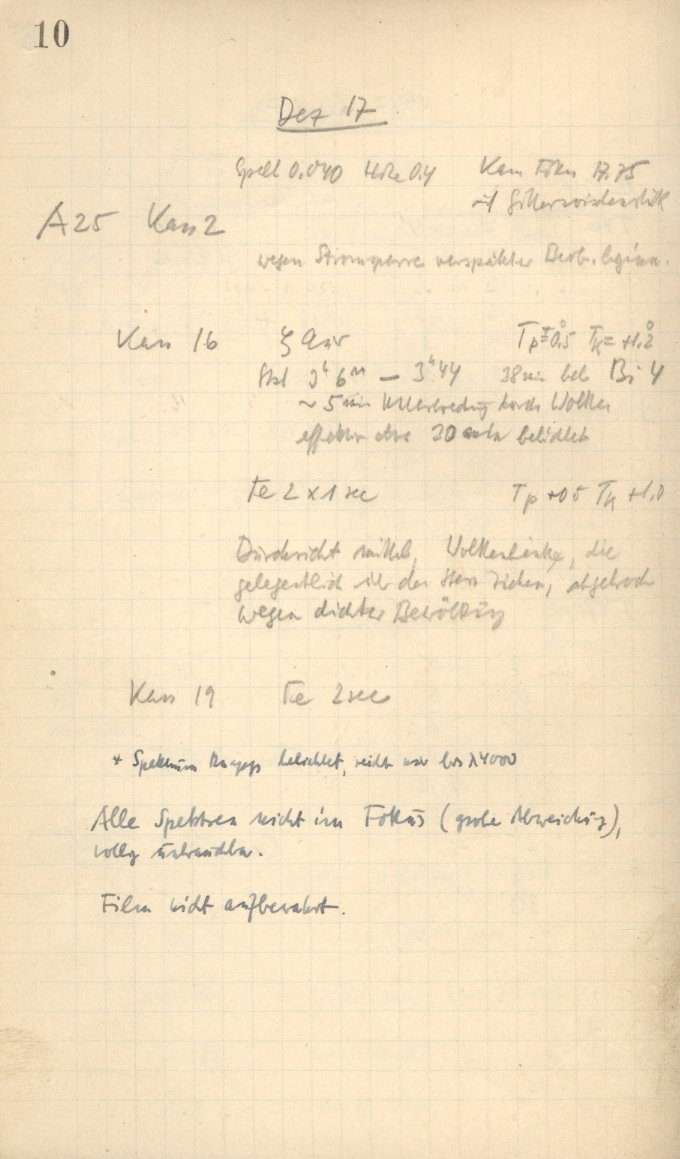 10
Dez 17
Spalt 0.040 Höhe 0.4 Kam Fokus 17.75
mit
A25 Kass 2
wegen Stromsperre verspäteter Beob. beginn.
Kass 16 ζ Aur Tp +0.5 Tk = +1.2
3h 6m — 3h 44 38 min bel Bi 4
~ 5 min Unterbrechung durch Wolken
effektiv etwa 30 min belichtet
Fe 2 x 1 sec Tp +0 5 Tk +1.0
Durchsicht mittel, Wolkenbänke, die
gelegentlich üb den Stern ziehen, abgebroch
wegen dichter Bewölkung
Kass 19 Fe 2 sec
* Spektrum knapp belichtet, reicht nur bis λ 4000
Alle Spektren nicht im Fokus (große Abweichung),
völlig unbrauchbar.
Film nicht aufbewahrt.